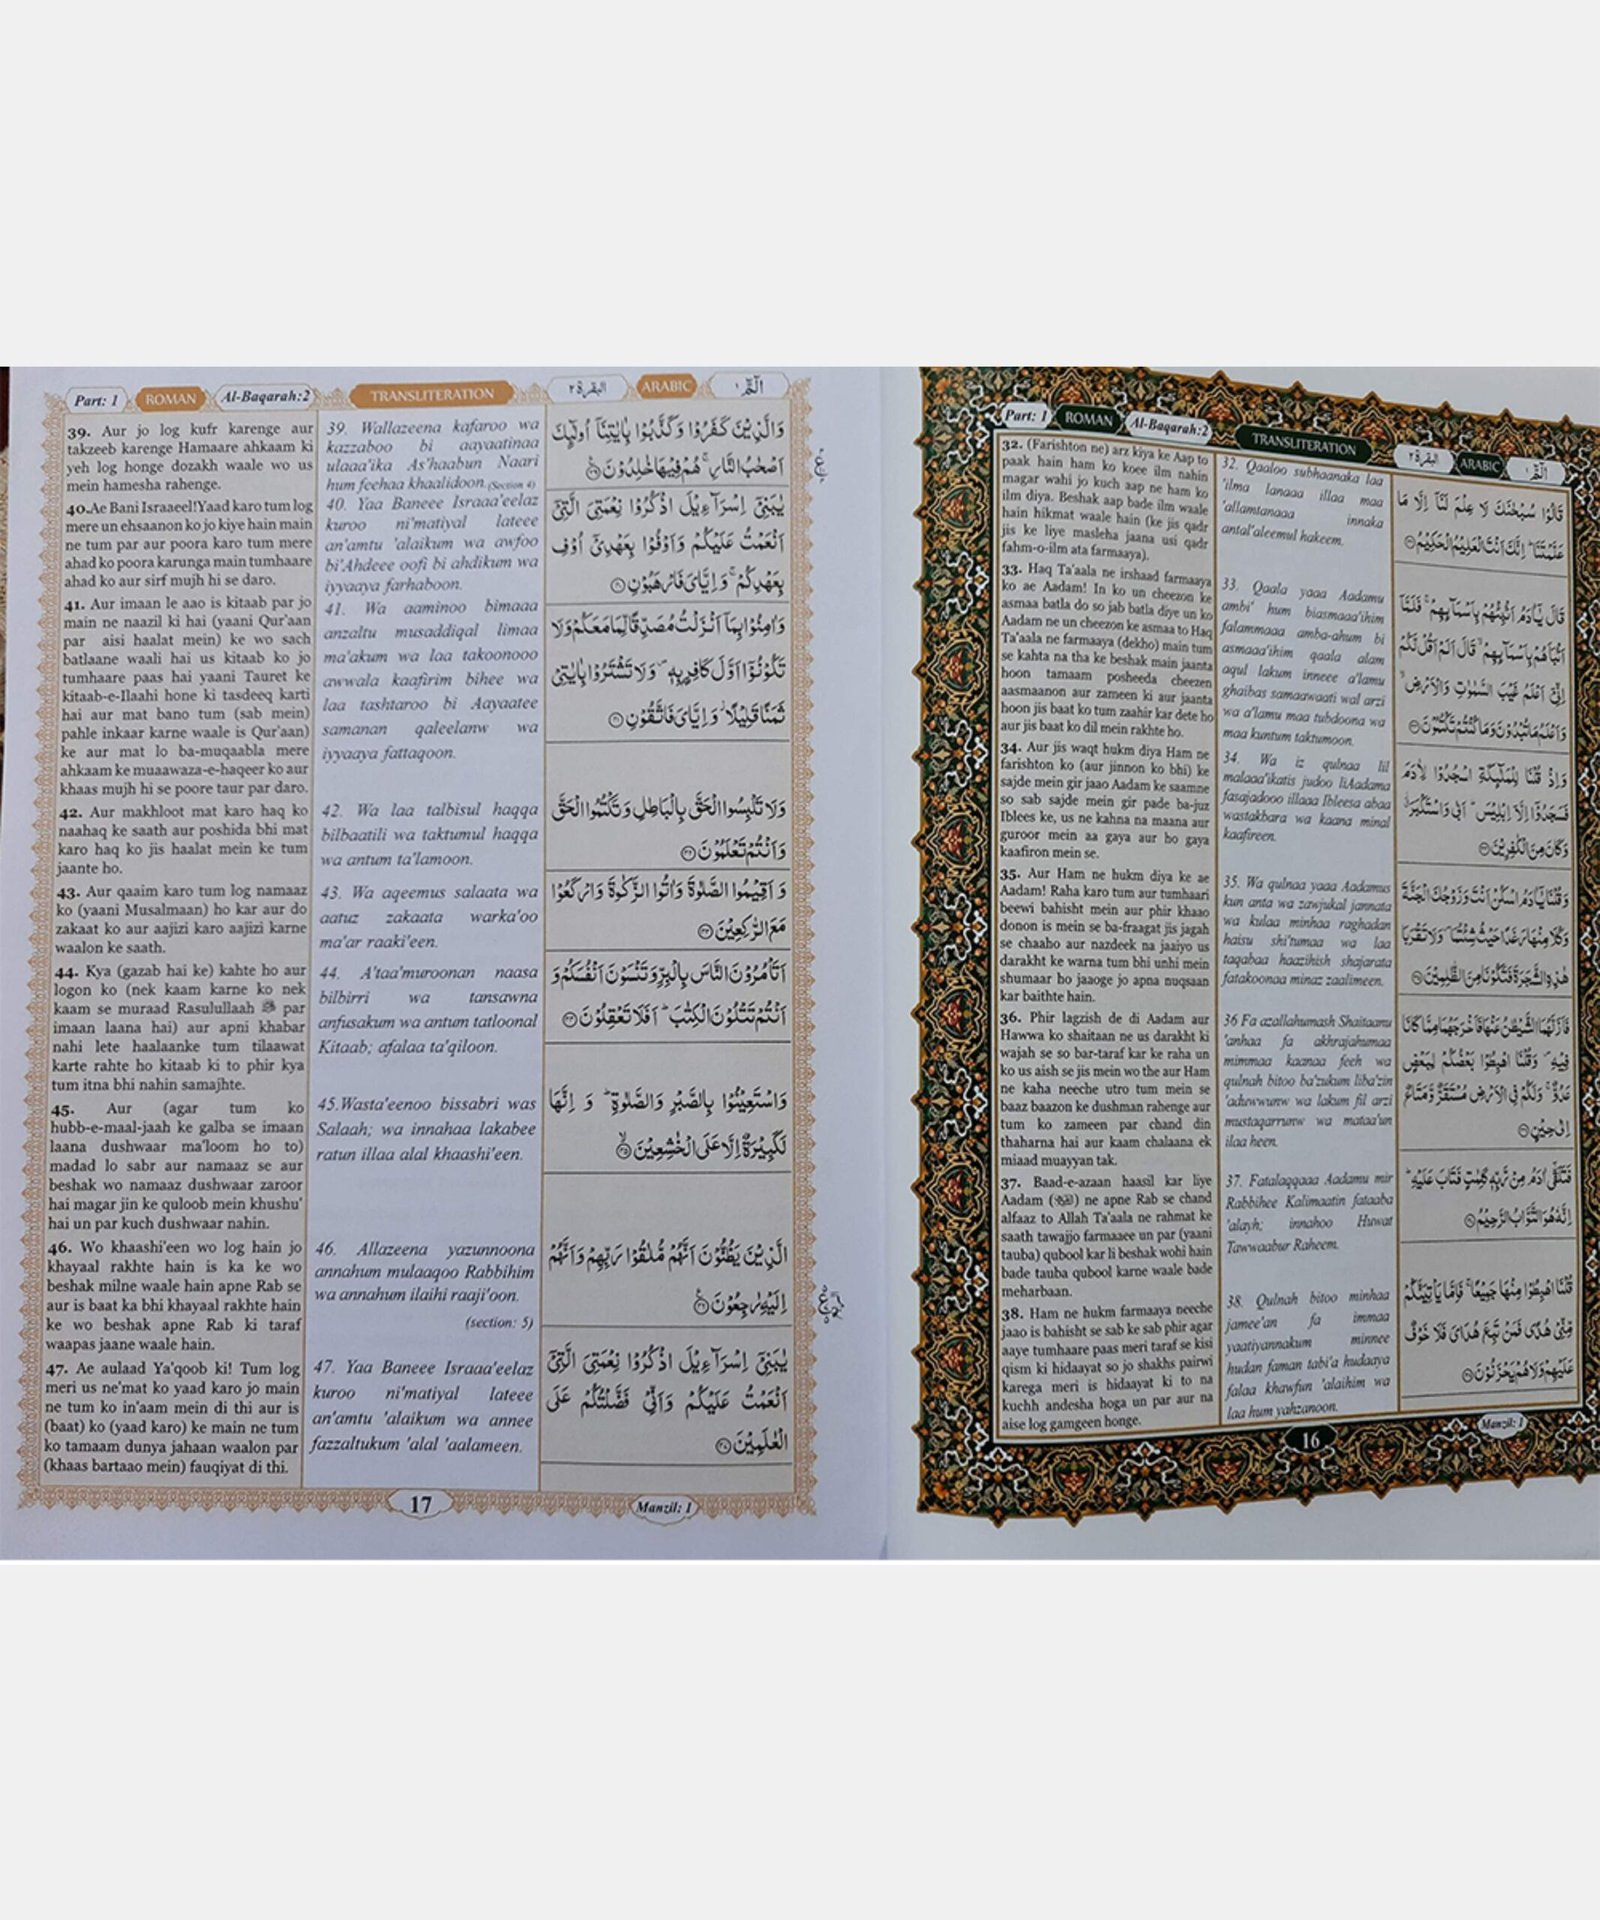 Part: 1
ROMAN
Al-Baqarah:2
TRANSLITERATION
البقرة ٢
ARABIC
الٓمّٓ ١
39. Aur jo log kufr karenge aur
takzeeb karenge Hamaare ahkaam ki
yeh log honge dozakh waale wo us
mein hamesha rahenge.
40.Ae Bani Israaeel!Yaad karo tum log
mere un ehsaanon ko jo kiye hain main
ne tum par aur poora karo tum mere
ahad ko poora karunga main tumhaare
ahad ko aur sirf mujh hi se daro.
41. Aur imaan le aao is kitaab par jo
main ne naazil ki hai (yaani Qur'aan
par aisi haalat mein) ke wo sach
batlaane waali hai us kitaab ko jo
tumhaare paas hai yaani Tauret ke
kitaab-e-Ilaahi hone ki tasdeeq karti
hai aur mat bano tum (sab mein)
pahle inkaar karne waale is Qur'aan)
ke aur mat lo ba-muqaabla mere
ahkaam ke muaawaza-e-haqeer ko aur
khaas mujh hi se poore taur par daro.
42. Aur makhloot mat karo haq ko
naahaq ke saath aur poshida bhi mat
karo haq ko jis haalat mein ke tum
jaante ho.
43. Aur qaaim karo tum log namaaz
ko (yaani Musalmaan) ho kar aur do
zakaat ko aur aajizi karo aajizi karne
waalon ke saath.
44. Kya (gazab hai ke) kahte ho aur
logon ko (nek kaam karne ko nek
kaam se muraad Rasulullaah ﷺ par
imaan laana hai) aur apni khabar
nahi lete haalaanke tum tilaawat
karte rahte ho kitaab ki to phir kya
tum itna bhi nahin samajhte.
45. Aur (agar tum ko
hubb-e-maal-jaah ke galba se imaan
laana dushwaar ma'loom ho to)
madad lo sabr aur namaaz se aur
beshak wo namaaz dushwaar zaroor
hai magar jin ke quloob mein khushu'
hai un par kuch dushwaar nahin.
46. Wo khaashi'een wo log hain jo
khayaal rakhte hain is ka ke wo
beshak milne waale hain apne Rab se
aur is baat ka bhi khayaal rakhte hain
ke wo beshak apne Rab ki taraf
waapas jaane waale hain.
47. Ae aulaad Ya'qoob ki! Tum log
meri us ne'mat ko yaad karo jo main
ne tum ko in'aam mein di thi aur is
(baat) ko (yaad karo) ke main ne tum
ko tamaam dunya jahaan waalon par
(khaas bartaao mein) fauqiyat di thi.
39. Wallazeena kafaroo wa
kazzaboo bi aayaatinaa
ulaaa'ika As'haabun Naari
hum feehaa khaalidoon.(Section 4)
40. Yaa Baneee Israaa'eelaz
kuroo ni'matiyal lateee
an'amtu 'alaikum wa awfoo
bi'Ahdeee oofi bi ahdikum wa
iyyaaya farhaboon.
41. Wa aaminoo bimaaa
anzaltu musaddiqal limaa
ma'akum wa laa takoonooo
awwala kaafirim bihee wa
laa tashtaroo bi Aayaatee
samanan qaleelanw wa
iyyaaya fattaqoon.
42. Wa laa talbisul haqqa
bilbaatili wa taktumul haqqa
wa antum ta'lamoon.
43. Wa aqeemus salaata wa
aatuz zakaata warka'oo
ma'ar raaki'een.
44. A'taa'muroonan naasa
bilbirri wa tansawna
anfusakum wa antum tatloonal
Kitaab; afalaa ta'qiloon.
45.Wasta'eenoo bissabri was
Salaah; wa innahaa lakabee
ratun illaa alal khaashi'een.
46. Allazeena yazunnoona
annahum mulaaqoo Rabbihim
wa annahum ilaihi raaji'oon.
(section: 5)
47. Yaa Baneee Israaa'eelaz
kuroo ni'matiyal lateee
an'amtu 'alaikum wa annee
fazzaltukum 'alal 'aalameen.
وَالَّذِيْنَ كَفَرُوْا وَكَذَّبُوْا بِاٰيٰتِنَاۤ اُولٰٓئِكَ
اَصْحٰبُ النَّارِ ۚ هُمْ فِيْهَا خٰلِدُوْنَ ۝۳۹
يٰبَنِيْٓ اِسْرَآءِيْلَ اذْكُرُوْا نِعْمَتِيَ الَّتِيْٓ
اَنْعَمْتُ عَلَيْكُمْ وَاَوْفُوْا بِعَهْدِيْٓ اُوْفِ
بِعَهْدِكُمْ ۚ وَاِيَّايَ فَارْهَبُوْنِ ۝۴۰
وَاٰمِنُوْا بِمَاۤ اَنْزَلْتُ مُصَدِّقًا لِّمَا مَعَكُمْ وَلَا
تَكُوْنُوْٓا اَوَّلَ كَافِرٍۭ بِهٖ ۪ وَلَا تَشْتَرُوْا بِاٰيٰتِيْ
ثَمَنًا قَلِيْلًا ۫ وَّاِيَّايَ فَاتَّقُوْنِ ۝۴۱
وَلَا تَلْبِسُوا الْحَقَّ بِالْبَاطِلِ وَتَكْتُمُوا الْحَقَّ
وَاَنْتُمْ تَعْلَمُوْنَ ۝۴۲
وَاَقِيْمُوا الصَّلٰوةَ وَاٰتُوا الزَّكٰوةَ وَارْكَعُوْا
مَعَ الرّٰكِعِيْنَ ۝۴۳
اَتَأْمُرُوْنَ النَّاسَ بِالْبِرِّ وَتَنْسَوْنَ اَنْفُسَكُمْ وَ
اَنْتُمْ تَتْلُوْنَ الْكِتٰبَ ؕ اَفَلَا تَعْقِلُوْنَ ۝۴۴
وَاسْتَعِيْنُوْا بِالصَّبْرِ وَالصَّلٰوةِ ؕ وَ اِنَّهَا
لَكَبِيْرَةٌ اِلَّا عَلَى الْخٰشِعِيْنَ ۝۴۵
الَّذِيْنَ يَظُنُّوْنَ اَنَّهُمْ مُّلٰقُوْا رَبِّهِمْ وَاَنَّهُمْ
اِلَيْهِ رٰجِعُوْنَ ۝۴۶
يٰبَنِيْٓ اِسْرَآءِيْلَ اذْكُرُوْا نِعْمَتِيَ الَّتِيْٓ
اَنْعَمْتُ عَلَيْكُمْ وَاَنِّيْ فَضَّلْتُكُمْ عَلَى
الْعٰلَمِيْنَ ۝۴۷
17
Manzil: 1
Part: 1
ROMAN
Al-Baqarah:2
TRANSLITERATION
البقرة ٢
ARABIC
الٓمّٓ ١
32. (Farishton ne) arz kiya ke Aap to
paak hain ham ko koee ilm nahin
magar wahi jo kuch aap ne ham ko
ilm diya. Beshak aap bade ilm waale
hain hikmat waale hain (ke jis qadr
jis ke liye masleha jaana usi qadr
fahm-o-ilm ata farmaaya).
33. Haq Ta'aala ne irshaad farmaaya
ko ae Aadam! In ko un cheezon ke
asmaa batla do so jab batla diye un ko
Aadam ne un cheezon ke asmaa to Haq
Ta'aala ne farmaaya (dekho) main tum
se kahta na tha ke beshak main jaanta
hoon tamaam posheeda cheezen
aasmaanon aur zameen ki aur jaanta
hoon jis baat ko tum zaahir kar dete ho
aur jis baat ko dil mein rakhte ho.
34. Aur jis waqt hukm diya Ham ne
farishton ko (aur jinnon ko bhi) ke
sajde mein gir jaao Aadam ke saamne
so sab sajde mein gir pade ba-juz
Iblees ke, us ne kahna na maana aur
guroor mein aa gaya aur ho gaya
kaafiron mein se.
35. Aur Ham ne hukm diya ke ae
Aadam! Raha karo tum aur tumhaari
beewi bahisht mein aur phir khaao
donon is mein se ba-fraagat jis jagah
se chaaho aur nazdeek na jaaiyo us
darakht ke warna tum bhi unhi mein
shumaar ho jaaoge jo apna nuqsaan
kar baithte hain.
36. Phir lagzish de di Aadam aur
Hawwa ko shaitaan ne us darakht ki
wajah se so bar-taraf kar ke raha un
ko us aish se jis mein wo the aur Ham
ne kaha neeche utro tum mein se
baaz baazon ke dushman rahenge aur
tum ko zameen par chand din
thaharna hai aur kaam chalaana ek
miaad muayyan tak.
37. Baad-e-azaan haasil kar liye
Aadam ne apne Rab se chand
alfaaz to Allah Ta'aala ne rahmat ke
saath tawajjo farmaaee un par (yaani
tauba) qubool kar li beshak wohi hain
bade tauba qubool karne waale bade
meharbaan.
38. Ham ne hukm farmaaya neeche
jaao is bahisht se sab ke sab phir agar
aaye tumhaare paas meri taraf se kisi
qism ki hidaayat so jo shakhs pairwi
karega meri is hidaayat ki to na
kuchh andesha hoga un par aur na
aise log gamgeen honge.
32. Qaaloo subhaanaka laa
'ilma lanaaa illaa maa
'allamtanaaa innaka
antal'aleemul hakeem.
33. Qaala yaaa Aadamu
ambi' hum biasmaaa'ihim
falammaaa amba-ahum bi
asmaaa'ihim qaala alam
aqul lakum inneee a'lamu
ghaibas samaawaati wal arzi
wa a'lamu maa tubdoona wa
maa kuntum taktumoon.
34. Wa iz qulnaa lil
malaaa'ikatis judoo liAadama
fasajadooo illaaa Ibleesa abaa
wastakbara wa kaana minal
kaafireen.
35. Wa qulnaa yaaa Aadamus
kun anta wa zawjukal jannata
wa kulaa minhaa raghadan
haisu shi'tumaa wa laa
taqabaa haazihish shajarata
fatakoonaa minaz zaalimeen.
36 Fa azallahumash Shaitaanu
'anhaa fa akhrajahumaa
mimmaa kaanaa feeh wa
qulnah bitoo ba'zukum liba'zin
'aduwwunw wa lakum fil arzi
mustaqarrunw wa mataa'un
ilaa heen.
37. Fatalaqqaaa Aadamu mir
Rabbihee Kalimaatin fataaba
'alayh; innahoo Huwat
Tawwaabur Raheem.
38. Qulnah bitoo minhaa
jamee'an fa immaa
yaatiyannakum minnee
hudan faman tabi'a hudaaya
falaa khawfun 'alaihim wa
laa hum yahzanoon.
قَالُوْا سُبْحٰنَكَ لَا عِلْمَ لَنَاۤ اِلَّا مَا
عَلَّمْتَنَا ؕ اِنَّكَ اَنْتَ الْعَلِيْمُ الْحَكِيْمُ ۝۳۲
قَالَ يٰۤاٰدَمُ اَنْۢبِئْهُمْ بِاَسْمَآئِهِمْ ۚ فَلَمَّاۤ
اَنْۢبَاَهُمْ بِاَسْمَآئِهِمْ ۙ قَالَ اَلَمْ اَقُلْ لَّكُمْ
اِنِّيْٓ اَعْلَمُ غَيْبَ السَّمٰوٰتِ وَالْاَرْضِ ۙ
وَاَعْلَمُ مَا تُبْدُوْنَ وَمَا كُنْتُمْ تَكْتُمُوْنَ ۝۳۳
وَاِذْ قُلْنَا لِلْمَلٰٓئِكَةِ اسْجُدُوْا لِاٰدَمَ
فَسَجَدُوْٓا اِلَّاۤ اِبْلِيْسَ ؕ اَبٰى وَاسْتَكْبَرَ ۫
وَكَانَ مِنَ الْكٰفِرِيْنَ ۝۳۴
وَقُلْنَا يٰۤاٰدَمُ اسْكُنْ اَنْتَ وَزَوْجُكَ الْجَنَّةَ
وَكُلَا مِنْهَا رَغَدًا حَيْثُ شِئْتُمَا ۪ وَلَا تَقْرَبَا
هٰذِهِ الشَّجَرَةَ فَتَكُوْنَا مِنَ الظّٰلِمِيْنَ ۝۳۵
فَاَزَلَّهُمَا الشَّيْطٰنُ عَنْهَا فَاَخْرَجَهُمَا مِمَّا كَانَا
فِيْهِ ۪ وَقُلْنَا اهْبِطُوْا بَعْضُكُمْ لِبَعْضٍ
عَدُوٌّ ۚ وَلَكُمْ فِي الْاَرْضِ مُسْتَقَرٌّ وَّمَتَاعٌ
اِلٰى حِيْنٍ ۝۳۶
فَتَلَقّٰٓى اٰدَمُ مِنْ رَّبِّهٖ كَلِمٰتٍ فَتَابَ عَلَيْهِ ؕ
اِنَّهٗ هُوَ التَّوَّابُ الرَّحِيْمُ ۝۳۷
قُلْنَا اهْبِطُوْا مِنْهَا جَمِيْعًا ۚ فَاِمَّا يَأْتِيَنَّكُمْ
مِّنِّيْ هُدًى فَمَنْ تَبِعَ هُدَايَ فَلَا خَوْفٌ
عَلَيْهِمْ وَلَا هُمْ يَحْزَنُوْنَ ۝۳۸
16
Manzil: 1